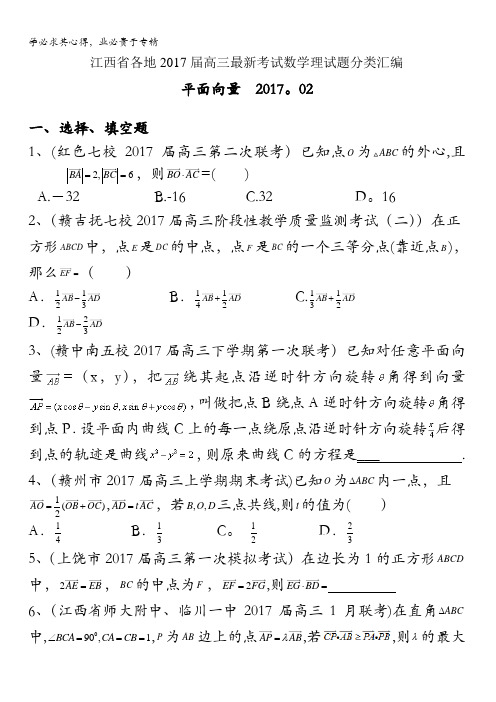 学必求其心得，业必贵于专精
江西省各地2017届高三最新考试数学理试题分类汇编
平面向量 2017。02
一、选择、填空题
1、(红色七校2017届高三第二次联考）已知点O为△ABC的外心,且
|BA|=2,|BC|=6，则BO·AC=( )
A.－32 B.-16 C.32 D。16
2、（赣吉抚七校2017届高三阶段性教学质量监测考试（二））在正
方形ABCD中，点E是DC的中点，点F是BC的一个三等分点(靠近点B)，
那么EF=（ ）
A．1/2AB－1/3AD B．1/4AB+1/2AD C.1/3AB+1/2AD
D．1/2AB－2/3AD
3、(赣中南五校2017届高三下学期第一次联考）已知对任意平面向
量AB=（x，y)，把AB绕其起点沿逆时针方向旋转θ角得到向量
AP=(xcosθ－ysinθ,xsinθ+ycosθ)，叫做把点B绕点A逆时针方向旋转θ角得
到点P．设平面内曲线C上的每一点绕原点沿逆时针方向旋转π/4后得
到点的轨迹是曲线x²－y²=2，则原来曲线C的方程是____．
4、（赣州市2017届高三上学期期末考试)已知O为ΔABC内一点，且
AO=1/2(OB+OC),AD=tAC，若B,O,D三点共线,则t的值为( )
A．1/4 B．1/3 C。1/2 D．2/3
5、（上饶市2017届高三第一次模拟考试）在边长为1的正方形ABCD
中，2AE=EB，BC的中点为F，EF=2FG,则EG·BD=
6、（江西省师大附中、临川一中2017届高三1月联考)在直角ΔABC
中,∠BCA=90⁰,CA=CB=1,P为AB边上的点AP=λAB,若CP•AB≥PA•PB,则λ的最大